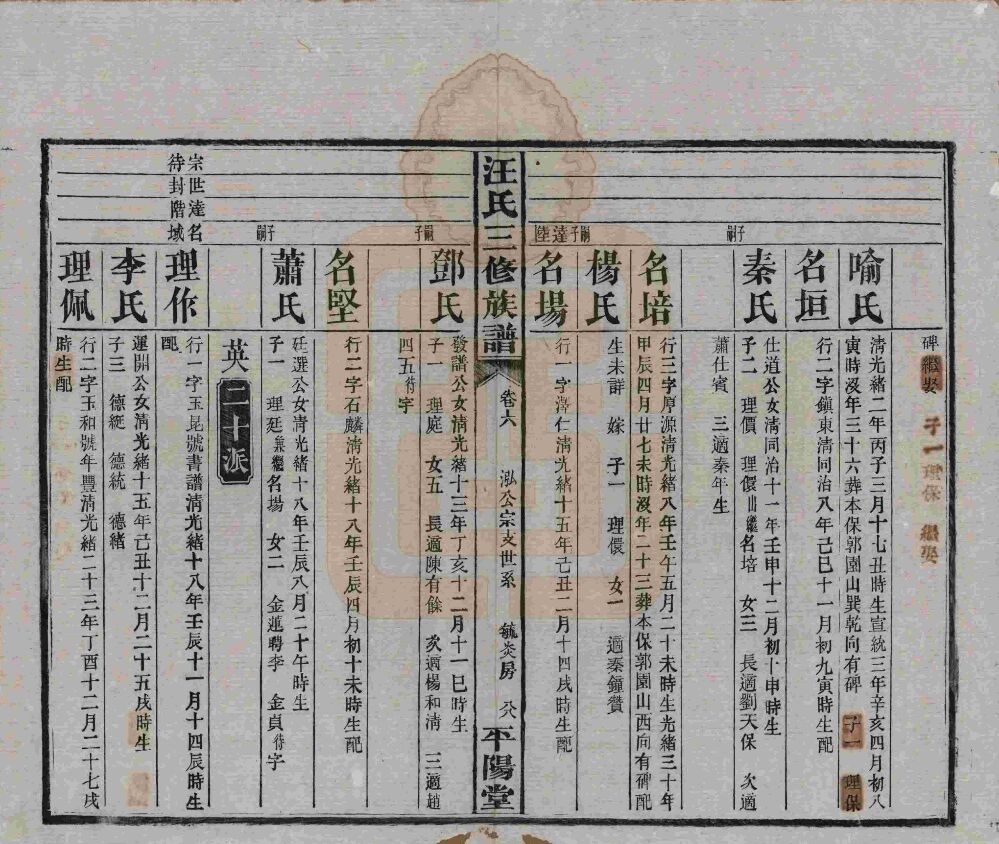 碑繼娶 子一 理保 繼娶
喻氏 清光緒二年丙子三月十七丑時生宣統三年辛亥四月初八
寅時沒年三十六葬本保郭園山巽乾向有碑 子一 理保
名垣 行二字鎮東清同治八年己巳十一月初九寅時生配
子嗣
秦氏 仕道公女清同治十一年壬申十二月初十申時生
子二 理價 理儇出繼名培 女三 長適劉天保 次適
蕭仕賓 三適秦年生
名培 行三字厚源清光緒八年壬午五月二十未時生光緒三十年
甲辰四月廿七未時沒年二十三葬本保郭園山西向有碑配
嗣子達陸
楊氏 生未詳 嫁 子一 理儇 女一 適秦鐘贊
名場 行一字澤仁清光緒十五年己丑二月十四戌時生配
汪氏三修族譜 卷六 泓公宗支世系 毓炎房 平陽堂
嗣子
鄧氏 發譜公女清光緒十三年丁亥十二月十一巳時生
子一 理庭 女五 長適陳有餘 次適楊和清 三適趙
四五待字
名堅 行二字石麟清光緒十八年壬辰四月初十未時生配
子嗣
蕭氏 廷選公女清光緒十八年壬辰八月二十午時生
子一 理廷兼繼名場 女二 金蓮聘李 金貞待字
英二十派
宗世達名
待封階域
理作 行一字玉昆號書譜清光緒十八年壬辰十一月十四辰時生
配
李氏 運開公女清光緒十五年己丑十二月二十五戌時生
子三 德綎 德統 德緒
理佩 行二字玉和號年豐清光緒二十三年丁酉十二月二十七戌
時生配